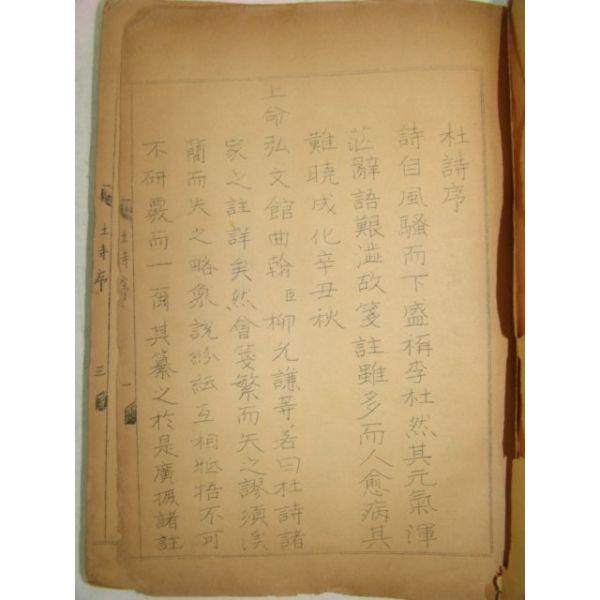 杜詩序
詩自風騷而下盛稱李杜然其元氣渾
茫辭語艱澁故箋註雖多而人愈病其
難曉成化辛丑秋
上命弘文館典翰臣柳允謙等若曰杜詩諸
家之註詳矣然會箋繁而失之謬須溪
簡而失之略衆說紛紜互相牴牾不可
不研覈而一爾其纂之於是廣摭諸註
土寺序 一
土寺序 三